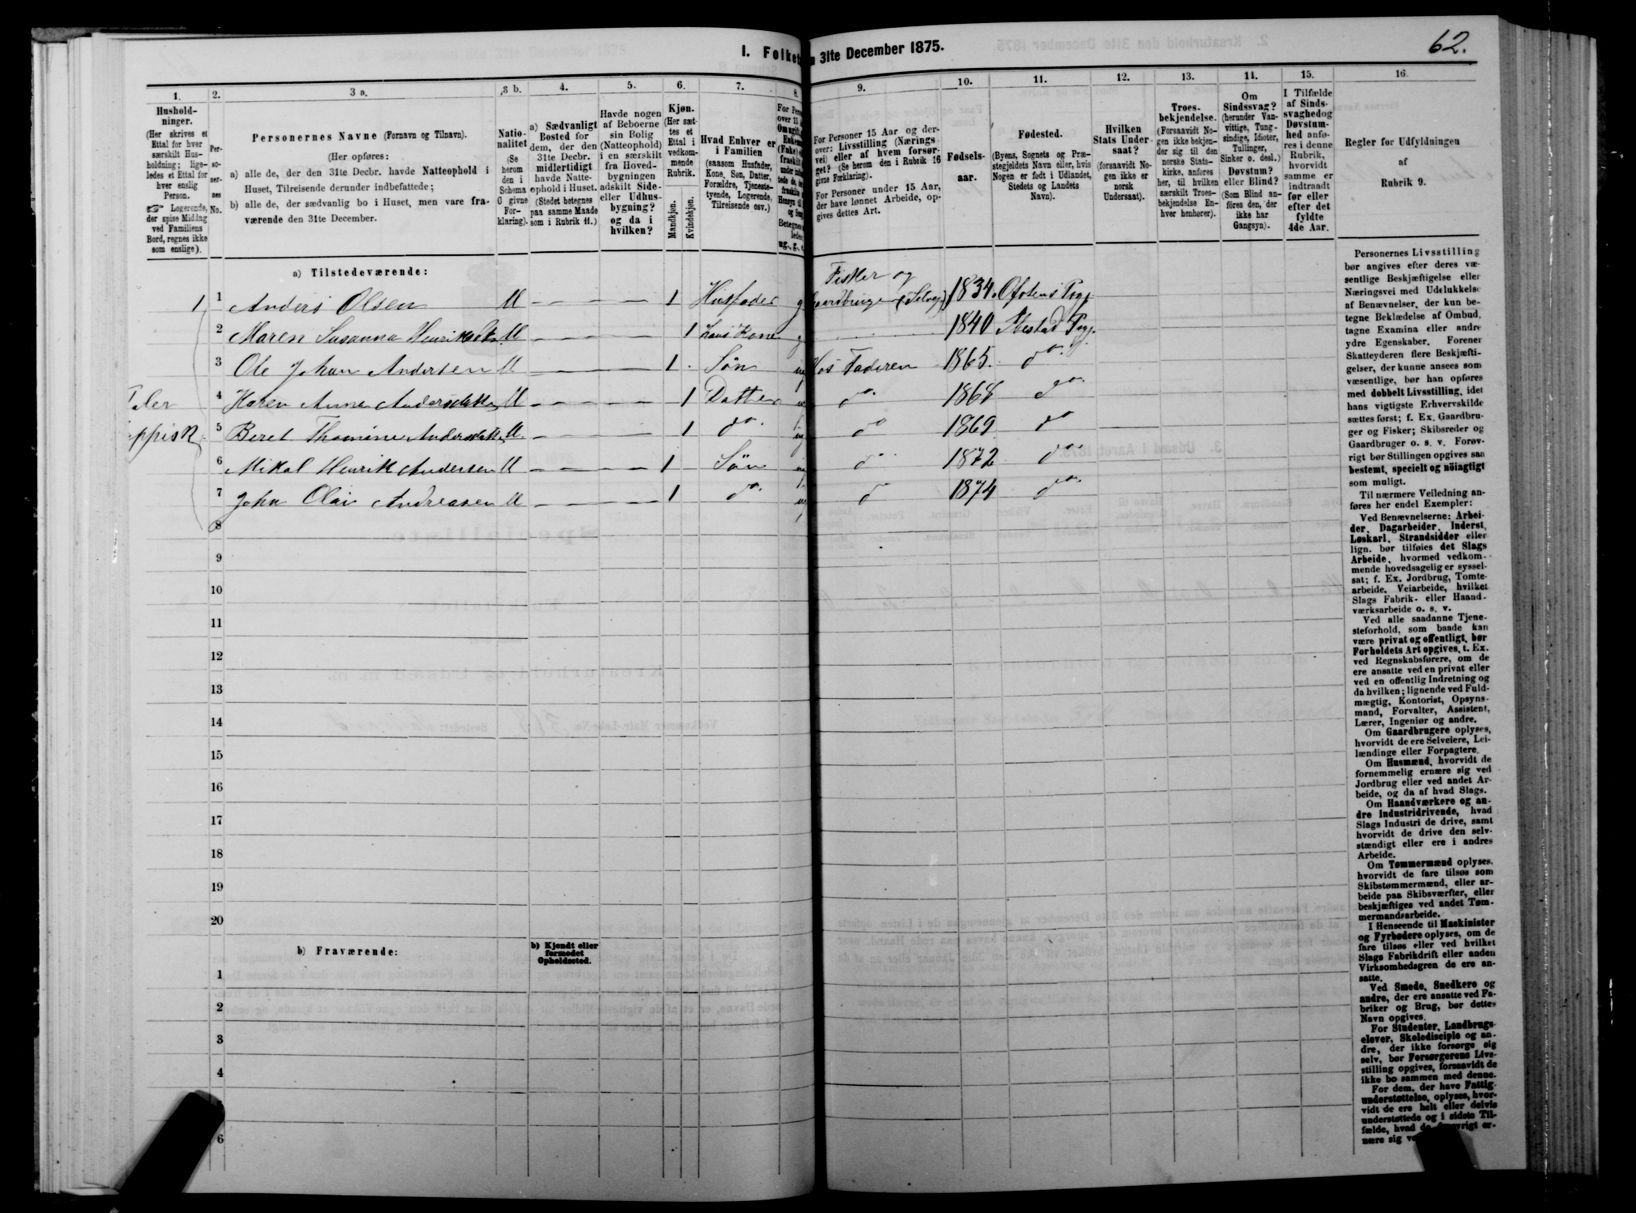 I. Folket
n 31te December 1875.
62.
1.
2.
3 a.
3 b.
4.
5.
6.
7.
8.
9.
10.
11.
12.
13.
14.
15.
16.
Hushold-
ninger.
(Her skrives et
Ettal for hver
særskilt Hus-
holdning; lige-
ledes et Ettal for
hver enslig
Person.
☞ Logerende,
der spise Middag
ved Familiens
Bord, regnes ikke
som enslige).
Per-
so-
ner-
nes
No.
Personernes Navne (Fornavn og Tilnavn).
(Her opføres:
a) alle de, der den 31te Decbr. havde Natteophold i
Huset, Tilreisende derunder indbefattede;
b) alle de, der sædvanlig bo i Huset, men vare fra-
værende den 31te December.
Natio-
nalitet
(Se
herom
den i
Schema
6 givne
For-
klaring).
a) Sædvanligt
Bosted for
dem, der den
31te Decbr.
midlertidigt
havde Natte-
ophold i Huset.
(Stedet betegnes
paa samme Maade
som i Rubrik 11.)
Havde nogen
af Beboerne
sin Bolig
(Natteophold)
i en særskilt
fra Hoved-
bygningen
adskilt Side-
eller Udhus-
bygning?
og da i
hvilken?
Kjøn.
(Her sæt-
tes et
Ettal i
vedkom-
mende
Rubrik.
Mandkjøn.
Kvindekjøn.
Hvad Enhver er
i Familien
(saasom Husfader,
Kone, Søn, Datter,
Forældre, Tjeneste-
tyende, Logerende,
Tilreisende osv.)
For Personer 15 Aar og der-
over: Livsstilling (Nærings
vei) eller af hvem forsør-
get? (Se herom den i Rubrik 16
givne Forklaring).
For Personer under 15 Aar,
der have lønnet Arbeide, op-
gives dettes Art.
Fødsels-
aar.
Fødested.
(Byens, Sognets og Præ-
stegjeldets Navn eller, hvis
Nogen er født i Udlandet,
Stedets og Landets
Navn).
Hvilken
Stats Under-
saat?
(forsaavidt No-
gen ikke er
norsk
Undersaat).
Troes-
bekjendelse.
(Forsaavidt No-
gen ikke bekjen-
der sig til den
norske Stats-
kirke, anføres
her, til hvilken
særskilt Troes-
bekjendelse En-
hver henhører).
Om
Sindssvag?
(herunder Van-
vittige, Tung-
sindige, Idioter,
Tullinger,
Sinker o. desl.)
Døvstum?
eller Blind?
(Som Blind an-
føres den, der
ikke har
Gangsyn).
I Tilfælde
af Sinds-
svaghed og
Døvstum-
hed anfø-
res i denne
Rubrik,
hvorvidt
samme er
indtraadt
før eller
efter det
fyldte
4de Aar.
Regler for Udfyldningen
af
Rubrik 9.
a) Tilstedeværende:
Fisker og
1 1 Anders Olsen U 1 Husfader Gaardbruger (Selvej) 1834 Ofotens Prgj
2 Maren Susanna U 1 hans Kone 1840 Ibestad Prgj.
3 Ole Johan Andersen U 1 Søn Hos Faderen 1865 do
4 Karen Anne Andersdatter U 1 Datter do 1868 do
5 Beret Thomine Andersdatter U. 1 do. do 1869 do
6 Mikal Henrik Andersen U 1 Søn do 1872 do
7 Johan Olai Andreasen U 1 do. do 1874 do
8
9
10
11
12
13
14
15
16
17
18
19
20
b) Fraværende:
b) Kjendt eller
formodet
Opholdssted.
1
2
3
4
6
Personernes Livsstilling
bør angives efter deres væ-
sentlige Beskjæftigelse eller
Næringsvei med Udelukkelse
af Benævnelser, der kun be-
tegne Beklædelse af Ombud,
tagne Examina eller andre
ydre Egenskaber. Forener
Skatteyderen flere Beskjæfti-
gelser, der kunne ansees som
væsentlige, bør han opføres
med dobbelt Livsstilling, idet
hans vigtigste Erhvervskilde
sættes først; f. Ex. Gaardbru-
ger og Fisker; Skibsreder og
Gaardbruger o. s. v. Forøv-
rigt bør Stillingen opgives saa
bestemt, specielt og nöiagtigt
som muligt.
Til nærmere Veiledning an-
føres her endel Exempler:
Ved Benævnelserne: Arbei-
der, Dagarbeider, Inderst,
Løskarl, Strandsidder eller
lign. bør tilføies det Slags
Arbeide, hvormed vedkom-
mende hovedsagelig er syssel-
sat; f. Ex. Jordbrug, Tomte-
arbeide, Veiarbeide, hvilket
Slags Fabrik- eller Haand-
værksarbeide o. s. v.
Ved alle saadanne Tjene-
steforhold, som baade kan
være privat og offentligt, bør
Forholdets Art opgives, t. Ex.
ved Regnskabsførere, om de
ere ansatte ved en privat eller
ved en offentlig Indretning og
da hvilken; lignende ved Fuld-
mægtig, Kontorist, Opsyns-
mand, Forvalter, Assistent,
Lærer, Ingeniør og andre.
Om Gaardbrugere oplyses,
hvorvidt de ere Selveiere, Lei-
lændinge eller Forpagtere.
Om Husmænd, hvorvidt de
fornemmelig ernære sig ved
Jordbrug eller ved andet Ar-
beide, og da af hvad Slags.
Om Haandværkere og an-
dre Industridrivende, hvad
Slags Industri de drive, samt
hvorvidt de drive den selv-
stændigt eller ere i andres
Arbeide.
Om Tømmermænd oplyses,
hvorvidt de fare tilsøs som
Skibstømmermænd, eller ar-
beide paa Skibsværfter, eller
beskjæftiges ved andet Tøm-
mermandsarbeide.
I Henseende til Maskinister
og Fyrbødere oplyses, om de
fare tilsøs eller ved hvilket
Slags Fabrikdrift eller anden
Virksomhedsgren de ere an-
satte.
Ved Smede, Snedkere og
andre, der ere ansatte ved Fa-
briker og Brug, bør dettes
Navn opgives.
For Studenter, Landbrugs-
elever, Skoledisciple og an-
dre, der ikke forsørge sig
selv, bør Forsørgerens Livs-
stilling opgives, forsaavidt de
ikke bo sammen med denne.
For dem, der have Fattig-
understøttelse, oplyses, hvor-
vidt de ere helt eller delvis
understøttede og i sidste Til-
fælde, hvad de forøvrigt er-
nære sig ve